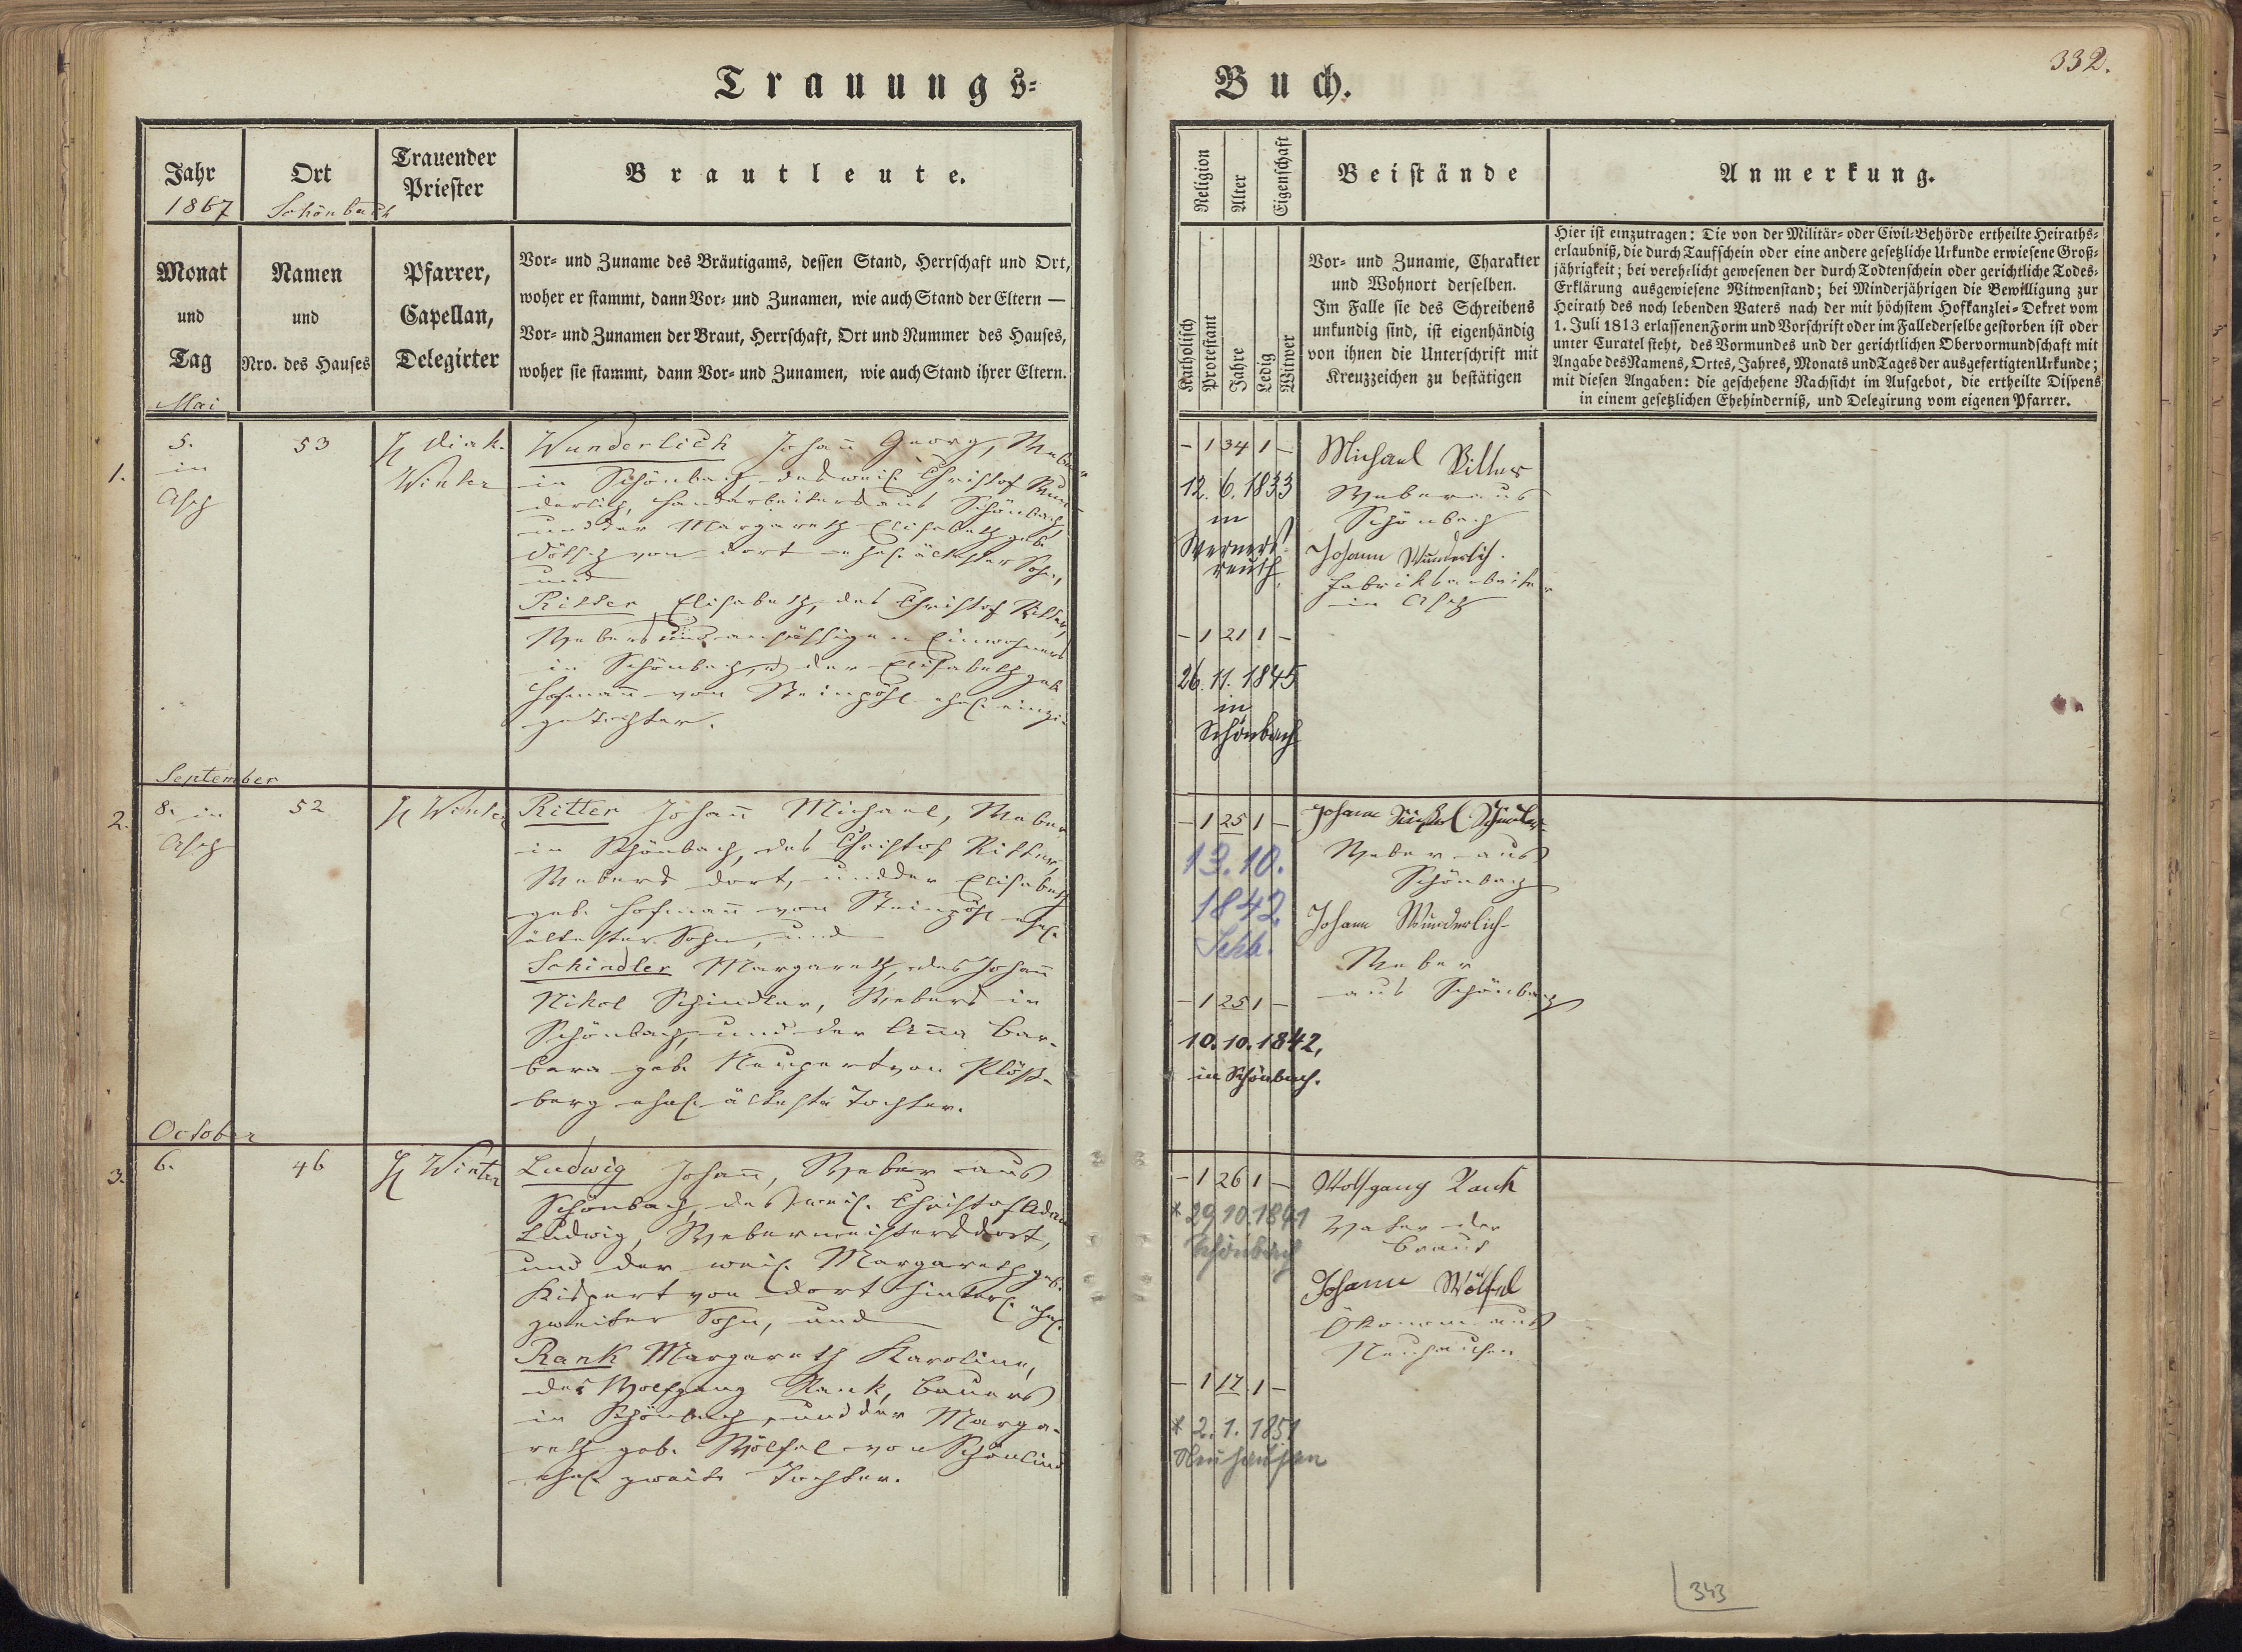 Trauungs=
Buch.
332.
Jahr
1867
Ort
Schönbach
Trauender
Priester
Brautleute.
Monat
und
Tag
Mai
Namen
und
Nro. des Hauses
Pfarrer,
Capellan,
Delegirter
Vor= und Zuname des Bräutigams, dessen Stand, Herrschaft und Ort,
woher er stammt, dann Vor= und Zunamen, wie auch Stand der Eltern —
Vor= und Zunamen der Braut, Herrschaft, Ort und Nummer des Hauses,
woher sie stammt, dann Vor= und Zunamen, wie auch Stand ihrer Eltern.
Religion
Alter
Eigenschaft
Beistände
Anmerkung.
Katholisch
Protestant
Jahre
Ledig
Witwer
Vor= und Zuname, Charakter
und Wohnort derselben.
Im Falle sie des Schreibens
unkundig sind, ist eigenhändig
von ihnen die Unterschrift mit
Kreuzzeichen zu bestätigen
Hier ist einzutragen: Die von der Militär= oder Civil=Behörde ertheilte Heiraths=
erlaubniß, die durch Taufschein oder eine andere gesetzliche Urkunde erwiesene Groß=
jährigkeit; bei verehelicht gewesenen der durch Todtenschein oder gerichtliche Todes=
Erklärung ausgewiesene Witwenstand; bei Minderjährigen die Bewilligung zur
Heirath des noch lebenden Vaters nach der mit höchstem Hofkanzlei=Dekret vom
1. Juli 1813 erlassenen Form und Vorschrift oder im Falle derselbe gestorben ist oder
unter Curatel steht, des Vormundes und der gerichtlichen Obervormundschaft mit
Angabe des Namens, Ortes, Jahres, Monats und Tages der ausgefertigten Urkunde;
mit diesen Angaben: die geschehene Nachsicht im Aufgebot, die ertheilte Dispens
in einem gesetzlichen Ehehinderniß, und Delegirung vom eigenen Pfarrer.
1.
5.
in
Asch
53
H Diak.
Winter
Wunderlich Johañ Georg, Weber
in Schönbach, des weil. Christof Wun=
derlich, Handarbeiters aus Schönbach,
und der Margareth Elisabeth geb.
von dort ehel. ältester Sohn,
und
Ritter Elisabeth, des Christof Ritter,
Webers und ansässigen Einwohners
in Schönbach, u der Elisabeth geb.
Hofmañ von Steinpöhl ehel. einzi=
ge Tochter.
- 1 34 1 -
12. 6. 1833
in
Werners=
reuth.
- 1 21 1 -
26. 11. 1845
in
Schönbach
Michael Ritter
Weber aus
Schönbach
Johann Wunderlich.
Fabriksarbeiter
in Asch
September
2.
8. in
Asch
52
H Winter
Ritter Johañ Michael, Weber
in Schönbach, des Christof Ritter,
Webers dort, und der Elisabeth
geb. Hofmañ von Steinpöhl ehel.
ältester Sohn, und
Schindler Margareth, des Johañ
Nikol Schindler, Webers in
Schönbach, und der Aña Bar=
bara geb. Neupert von Plöß=
berg ehel. älteste Tochter.
- 1 25 1 -
13. 10.
1842
Schb.
- 1 25 1 -
10. 10. 1842,
in Schönbach.
Johann Schindler
Weber aus
Schönbach
Johann Wunderlich
Weber
aus Schönbach
October
3.
6.
46
H Winter
Ludwig Johañ, Weber aus
Schönbach, des weil. Christof Adam
Ludwig, Webermeisters dort,
und der weil. Margareth geb.
Künzert von dort hinterl. ehel.
zweiter Sohn, und
Rank Margareth Karoline,
des Wolfgang Rank, Bauers
in Schönbach, und der Marga=
reth geb. Wölfel von Schönlind
ehel. zweite Tochter.
- 1 26 1 -
* 29.10.1841
Schönbach
- 1 17 1 -
* 2. 1. 1851
Neuhausen
Wolfgang Rank
Vater der
Braut
Johann Wölfel
Ökonom aus
Neuhausen
343